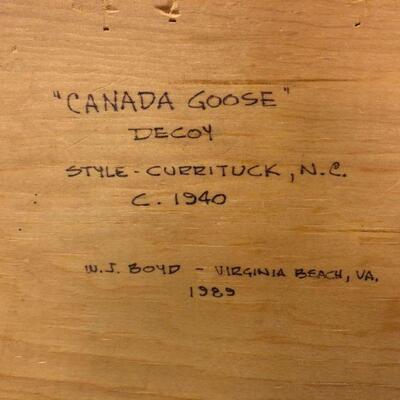 "CANADA GOOSE"
DECOY
STYLE - CURRITUCK, N.C.
C. 1940
W.J. BOYD - VIRGINIA BEACH, VA.
1989